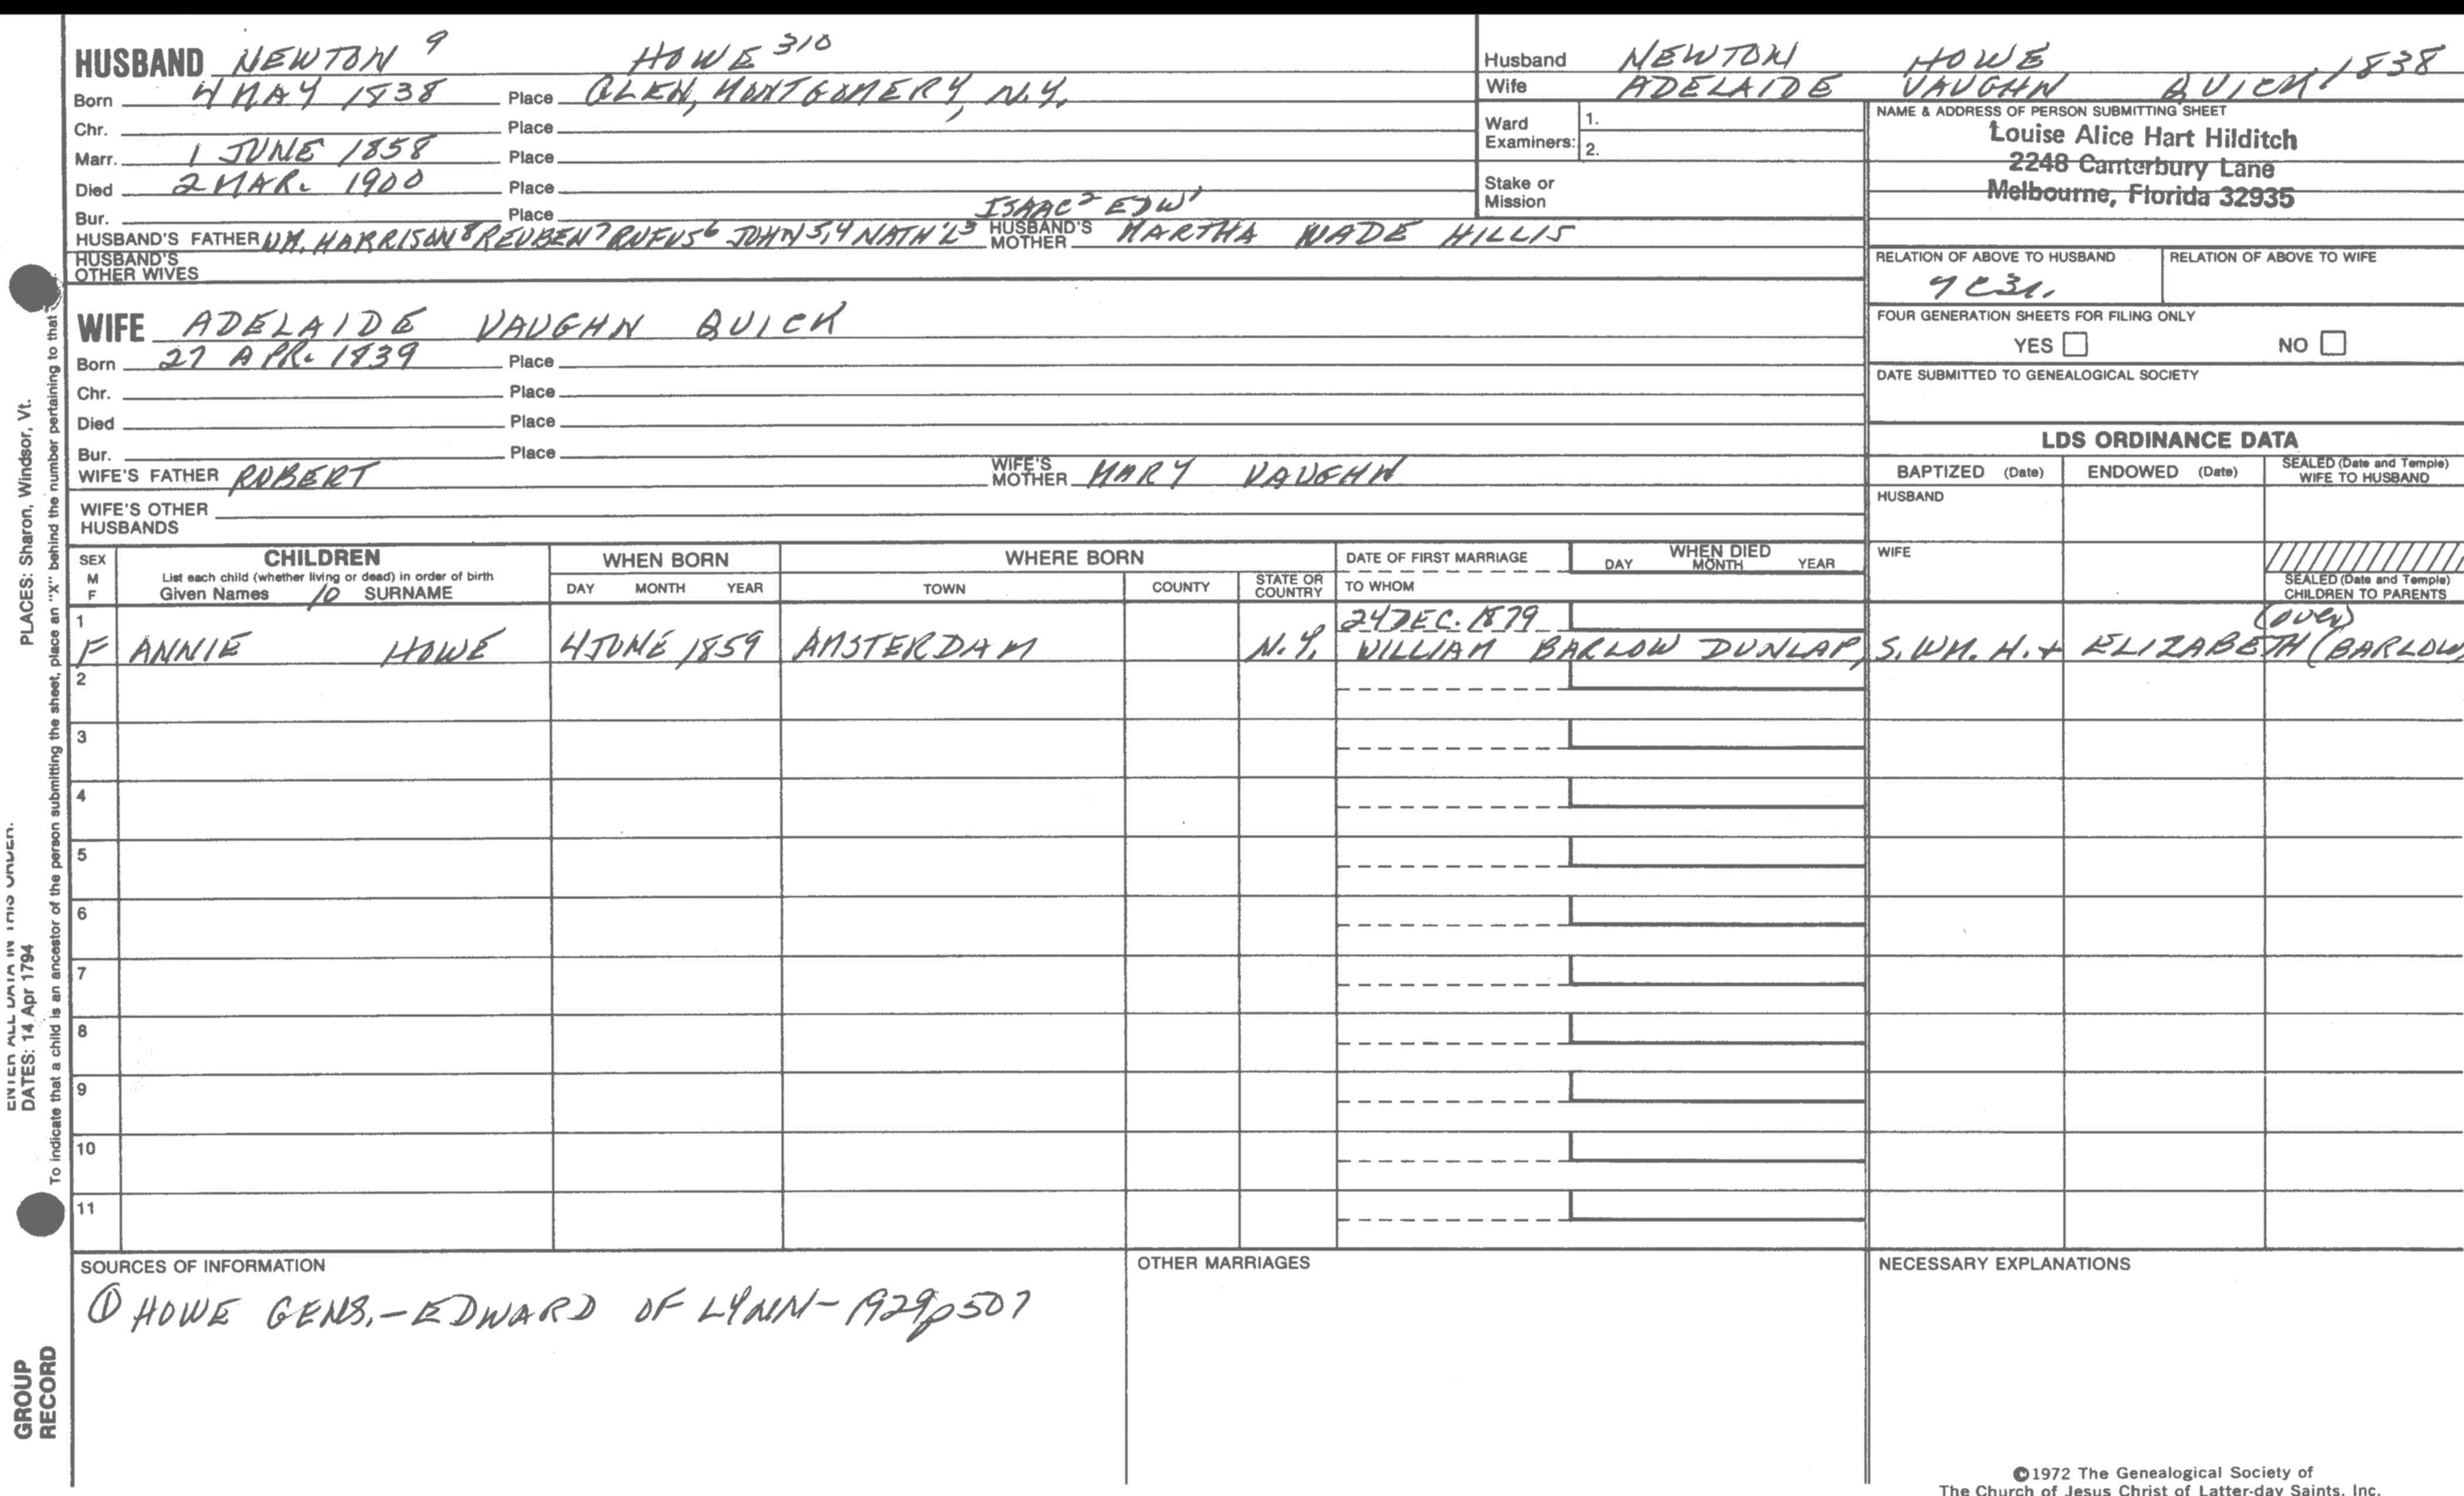 HUSBAND NEWTON 9 HOWE 310
Born 4 MAY 1838 Place GLEN, MONTGOMERY, N.Y.
Chr. Place
Marr. 1 JUNE 1858 Place
Died 2 MAR. 1900 Place
Bur. Place ISAAC 2 EDW 1
HUSBAND'S FATHER WM. HARRISON 8 REUBEN 7 RUFUS 6 JOHN 5,4 NATH'L 3 HUSBAND'S MOTHER MARTHA WADE HILLIS
HUSBAND'S OTHER WIVES
Husband NEWTON HOWE 1838
Wife ADELAIDE VAUGHN QUICK
Ward Examiners: 1.
2.
Stake or Mission
NAME & ADDRESS OF PERSON SUBMITTING SHEET
Louise Alice Hart Hilditch
2248 Canterbury Lane
Melbourne, Florida 32935
RELATION OF ABOVE TO HUSBAND RELATION OF ABOVE TO WIFE
FOUR GENERATION SHEETS FOR FILING ONLY
YES NO
DATE SUBMITTED TO GENEALOGICAL SOCIETY
WIFE ADELAIDE VAUGHN QUICK
Born 27 APR. 1839 Place
Chr. Place
Died Place
Bur. Place
WIFE'S FATHER ROBERT WIFE'S MOTHER MARY VAUGHN
WIFE'S OTHER HUSBANDS
LDS ORDINANCE DATA
BAPTIZED (Date) ENDOWED (Date) SEALED (Date and Temple) WIFE TO HUSBAND
HUSBAND
WIFE
SEALED (Date and Temple) CHILDREN TO PARENTS
SEX M F
CHILDREN
List each child (whether living or dead) in order of birth
Given Names 10 SURNAME
WHEN BORN
DAY MONTH YEAR
WHERE BORN
TOWN COUNTY STATE OR COUNTRY
DATE OF FIRST MARRIAGE
TO WHOM
WHEN DIED
DAY MONTH YEAR
1 24 DEC. 1879 (over)
F ANNIE HOWE 4 JUNE 1859 AMSTERDAM N.Y. WILLIAM BARLOW DUNLAP, S. WM. H. + ELIZABETH (BARLOW)
2
3
4
5
6
7
8
9
10
11
SOURCES OF INFORMATION
① HOWE GENS.-EDWARD OF LYNN-1929 p507
OTHER MARRIAGES
NECESSARY EXPLANATIONS
©1972 The Genealogical Society of
The Church of Jesus Christ of Latter-day Saints, Inc.
PLACES: Sharon, Windsor, Vt.
To indicate that a child is an ancestor of the person submitting the sheet, place an "X" behind the number pertaining to that
ENTER ALL DATA IN THIS ORDER:
DATES: 14 Apr 1794
GROUP
RECORD